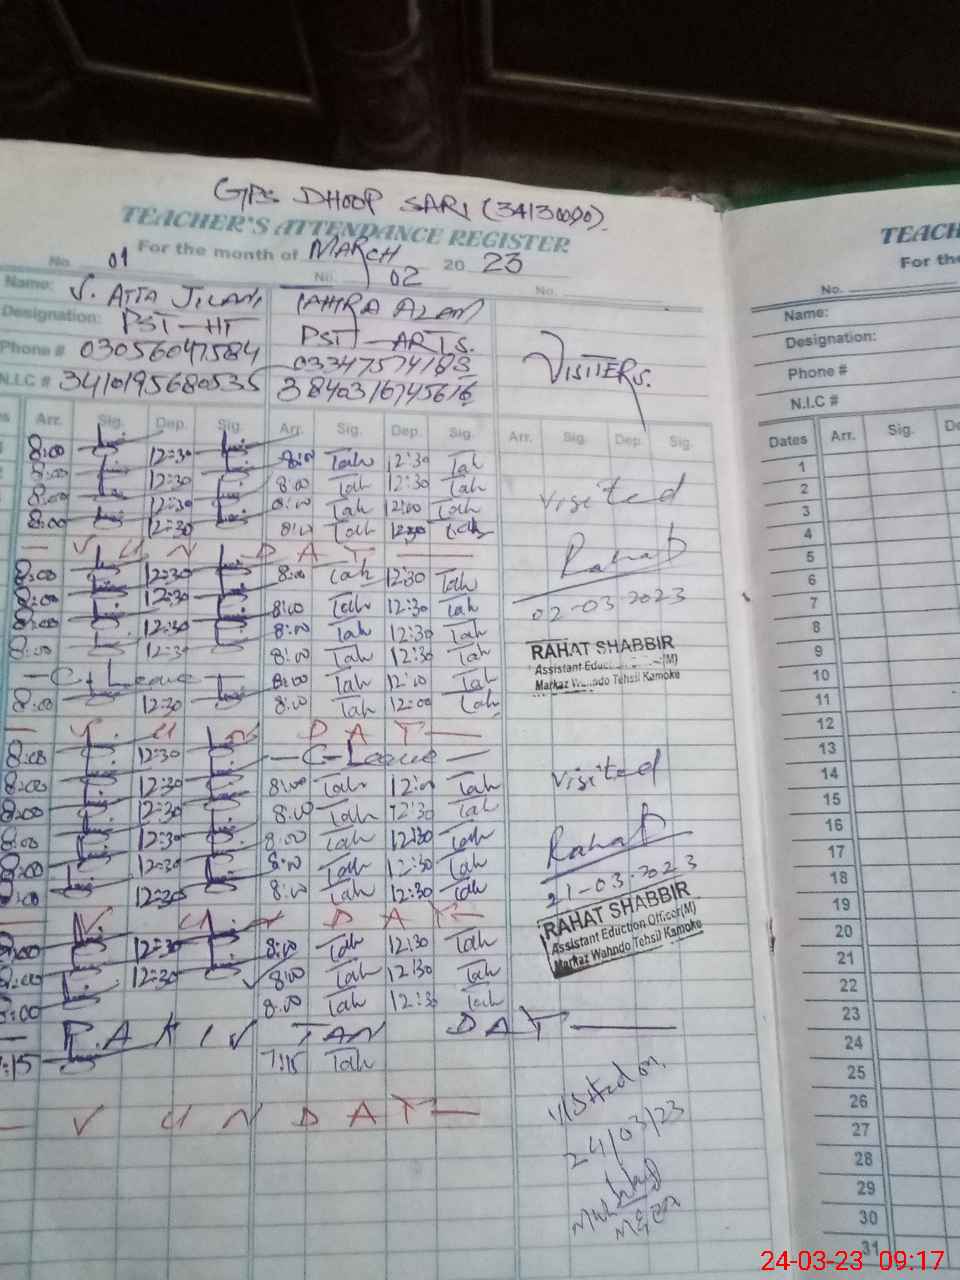 GPS DHOOP SARI (34130090).
TEACHER'S ATTENDANCE REGISTER
For the month of MARCH 2023
No 01 No. 02 No.
Name: S. ATTA JILANI TAHIRA ALAM
Designation: PST-HT PST-ARTS.
Phone # 03056047584 03347574183
N.I.C # 3410195680535 3840316745616
VISITERS.
Arr. Sig. Dep. Sig. Arr. Sig. Dep. Sig. Arr. Sig. Dep. Sig.
8:00 12:30 8:00 Tah 12:30 Tah
8:00 12:30 8:00 Tah 12:30 Tah
8:00 12:30 8:00 Tah 12:00 Tah
8:00 12:30 8:00 Tah 12:30 Tah
— S U N D A Y —
8:00 12:30 8:00 Tah 12:30 Tah
8:00 12:30 8:00 Tah 12:30 Tah
8:00 12:30 8:00 Tah 12:30 Tah
8:00 12:30 8:00 Tah 12:30 Tah
— C-Leave — 8:00 Tah 12:00 Tah
8:00 12:30 8:00 Tah 12:00 Tah
— S U N D A Y —
8:00 12:30 — C-Leave —
8:00 12:30 8:00 Tah 12:00 Tah
8:00 12:30 8:00 Tah 12:30 Tah
8:00 12:30 8:00 Tah 12:30 Tah
8:00 12:30 8:00 Tah 12:30 Tah
8:00 12:30 8:00 Tah 12:30 Tah
— S U N D A Y —
8:00 12:30 8:00 Tah 12:30 Tah
8:00 12:30 8:00 Tah 12:30 Tah
8:00 8:00 Tah 12:30 Tah
— P A K I S TAN D A Y —
7:15 7:15 Tah
— S U N D A Y —
visited
Rahat
02-03-2023
RAHAT SHABBIR
Assistant Eduction (M)
Markaz Wahndo Tehsil Kamoke
visited
Rahat
21-03-2023
RAHAT SHABBIR
Assistant Eduction Officer(M)
Markaz Wahndo Tehsil Kamoke
visited on
24/03/23
TEACH
For the
No.
Name:
Designation:
Phone #
N.I.C #
Dates Arr. Sig. De
1
2
3
4
5
6
7
8
9
10
11
12
13
14
15
16
17
18
19
20
21
22
23
24
25
26
27
28
29
30
31
24-03-23 09:17